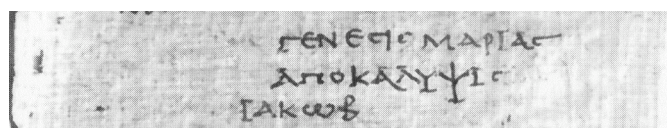 ΓΕΝΕCΙC ΜΑΡΙΑC
ΑΠΟΚΑΛΥΨΙC
ΙΑΚΩΒ